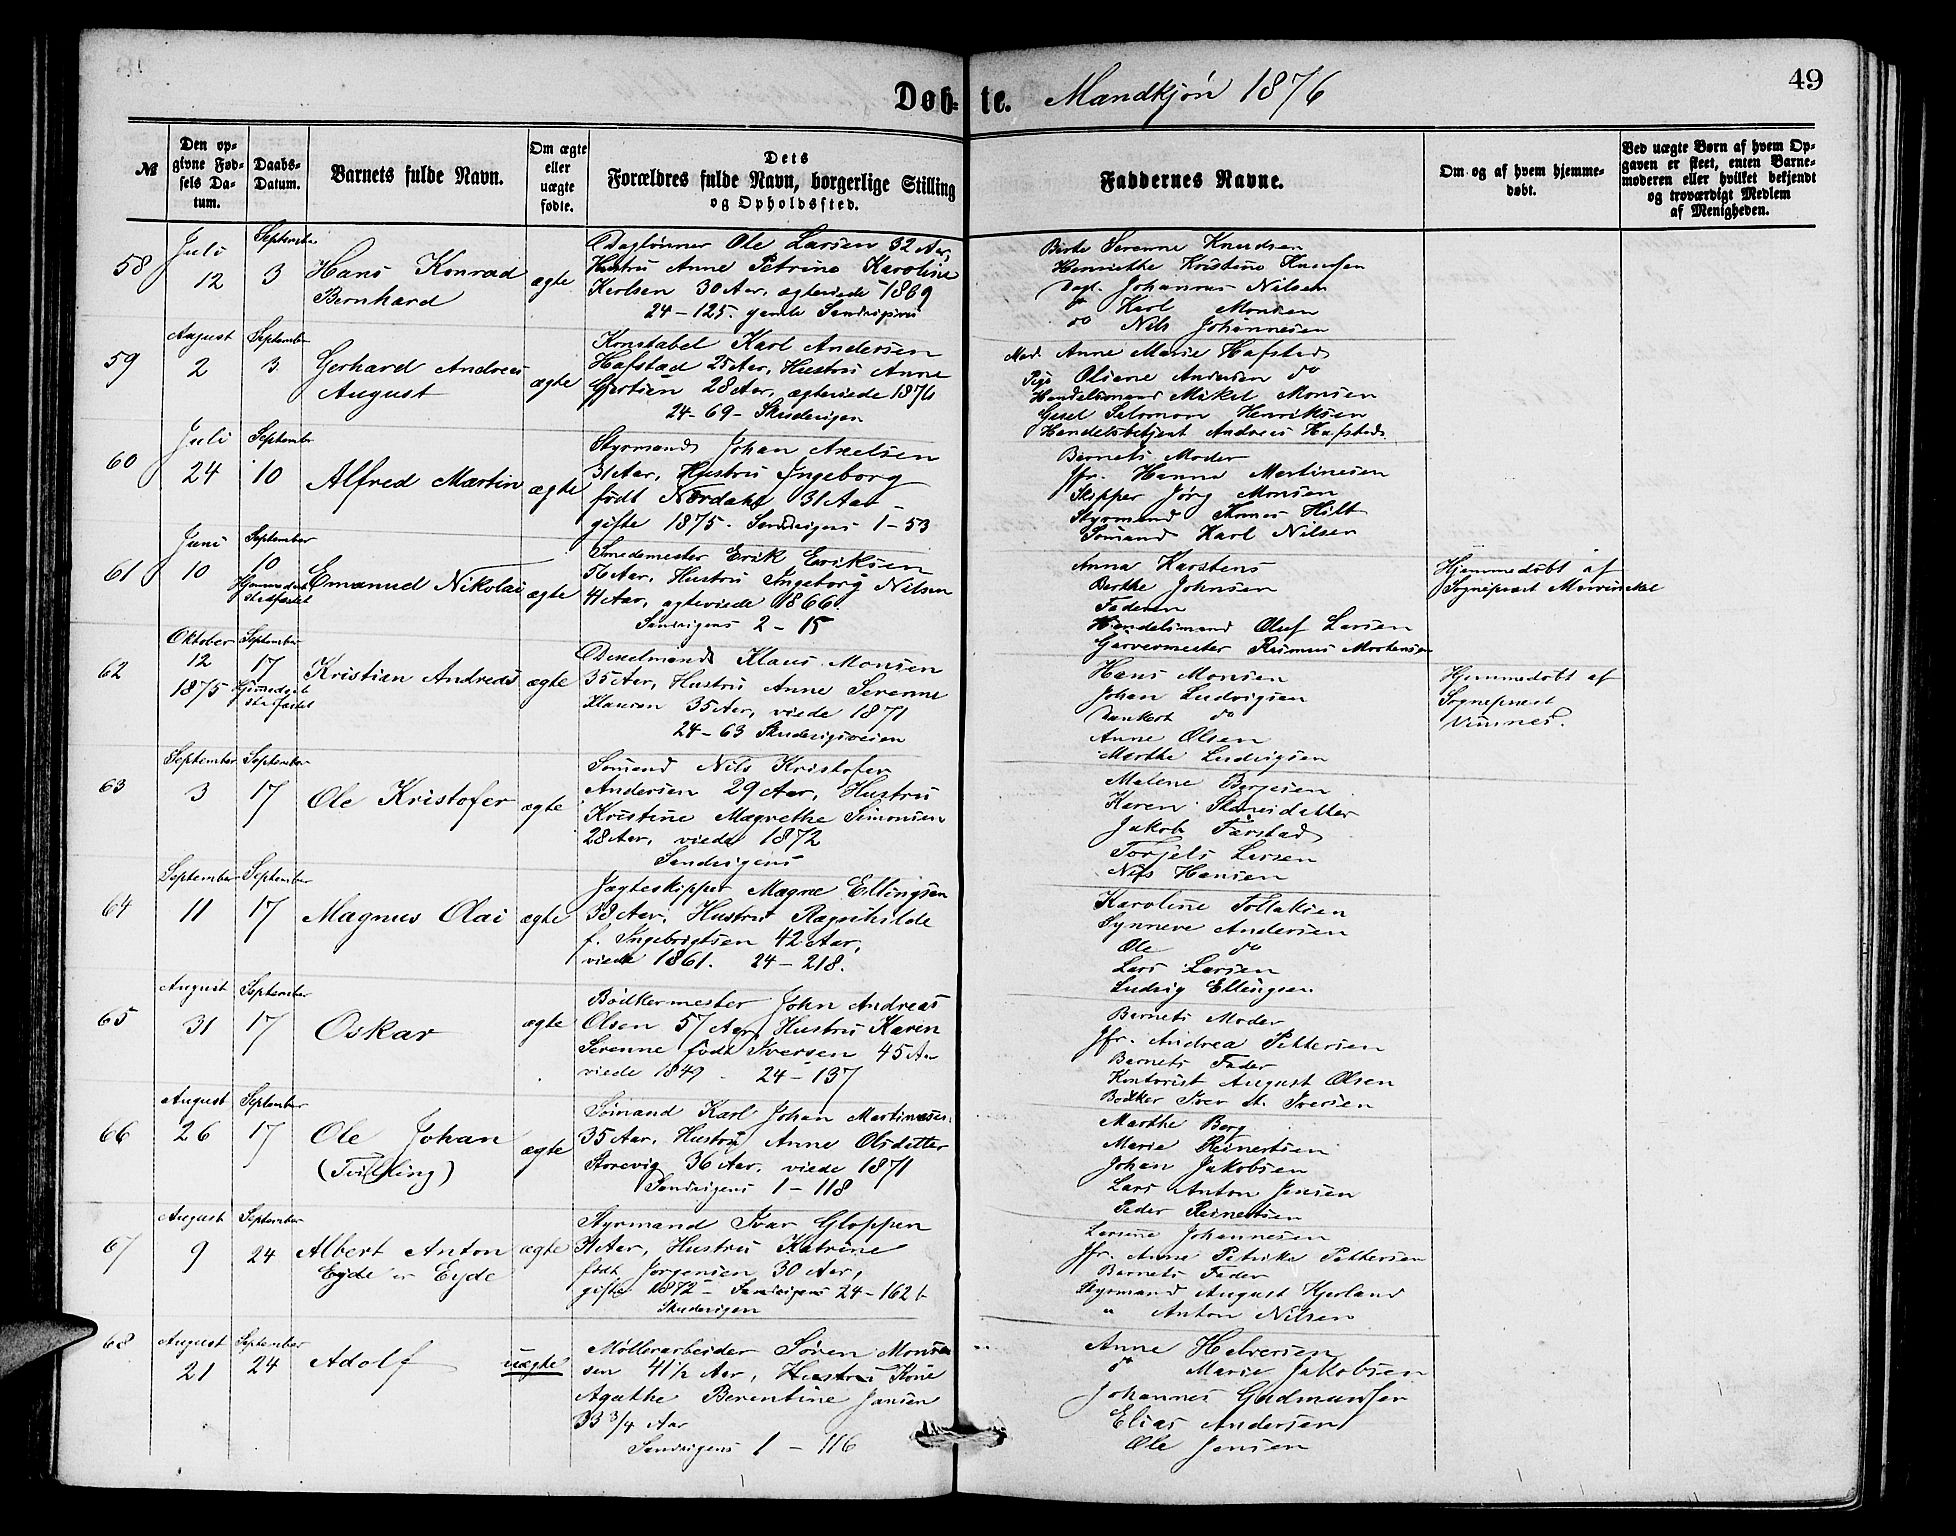 Døb-te. Mandkjøn 1876
49
№
Den op-
givne Fød-
sels Da-
tum.
Daabs-
Datum.
Barnets fulde Navn.
Om ægte
eller
uægte
fødte.
Dets
Forældres fulde Navn, borgerlige Stilling
og Opholdssted.
Faddernes Navne.
Om og af hvem hjemme-
døbt.
Ved uægte Børn af hvem Op-
gaven er skeet, enten Barne-
moderen eller hvilket bekjendt
og troværdigt Medlem
af Menigheden.
58
Juli
12
September
3
Hans Konrad
Bernhard
ægte
Daglønner Ole Larsen 32 Aar,
Hustru Anne Petrine Karoline
Karlsen 30 Aar, ægteviede 1869
24-125. gamle
Berte Serenne Knudsen
Henriette Kristine
Dagl. Johannes Nilsen
do Karl Monsen
do Nils Johannesen
59
August
2
September
3
Gerhard Andreas
August
ægte
Konstabel Karl Andersen
Hafstad 25 Aar, Hustru Anne
28 Aar, ægteviede 1876
24-69- Skudevigen
Mad. Anne Marie Hafstad
Pige Olsine Andersen do
Handelsmand Mikel Monsen
Salomon Henriksen
Handelsbetjent Andreas Hafstad
60
Juli
24
September
10
Alfred Martin
ægte
Styrmand Johan Axelsen
31 Aar, Hustru Ingeborg
født Nordahl 31 Aar
gifte 1875. Sandvigens 1-53
Barnets Moder
Jfr. Hanna Martinesen
Skipper Jørg Monsen
Styrmand Tomas Hilt
Sømand Karl Nilsen
61
Juni
10
September
10
Hjemmedøbt
stadfæstet
Emanuel Nikolai
ægte
Smedemester Erik Eriksen
56 Aar, Hustru Ingeborg Nilsen
41 Aar, ægteviede 1866
Sandvigens 2-15
Anna Karstens
Berthe Johnsen
Faderen
Handelsmand Oluf Larsen
Garvermester Rasmus Mortensen
Hjemmedøbt af
Sogneprest
62
Oktober
12
1875
September
17
Hjemmedøbt
stadfæstet
Kristian Andreas
ægte
Klaus Monsen
35 Aar, Hustru Anne Serenne
Klausen 35 Aar, viede 1871
24-63 Skudevigsveien
Hans Monsen
Johan Ludvigsen
Dankert do
Anne Olsen
Marthe Ludvigsen
Hjemmedøbt af
Sogneprest
63
September
3
September
17
Ole Kristofer
ægte
Sømand Nils Kristofer
Andersen 29 Aar, Hustru
Kristine Magrethe Simonsen
28 Aar, viede 1872
Sandvigens
Malene Børgesen
Karen
Jakob Farstad
Torjels Larsen
Nils Hansen
64
September
11
September
17
Magnus Olai
ægte
Jægteskipper Magne Ellingsen
53 Aar, Hustru Ragnhilde
f. Ingebrigtsen 42 Aar,
viede 1861. 24-218.
Karoline Tollaksen
Synneve Andersen
Ole do
Lars Larsen
Ludvig Ellingsen
65
August
31
September
17
Oskar
ægte
Bødkermester John Andreas
Olsen 57 Aar, Hustru Karen
Serenne født Iversen 45 Aar
viede 1849. 24-137
Barnets Moder
Jfr. Andrea Pettersen
Barnets Fader
Kontorist August Olsen
Bødker Iver St. Iversen
66
August
26
September
17
Ole Johan
(Tvilling)
ægte
Sømand Karl Johan Martinesen
35 Aar, Hustru Anne Olsdatter
Storevig 36 Aar, viede 1871
Sandvigens 1-118
Marthe Berg
Maria Reinertsen
Johan Jakobsen
Lars Anton Jensen
Peder Reinertsen
67
August
9
September
24
Albert Anton
Eyde er Eyde
ægte
Styrmand Ivar Gloppen
31 Aar, Hustru Katrine
født Jørgensen 30 Aar,
gifte 1872- Sandvigens 24-162 b
Skudevigen
Larsine Johannesen
Jfr. Anne Petrike Pettersen
Barnets Fader
Styrmand August Hjorland
" Anton Nilsen
68
August
21
September
24
Adolf
uægte
Møllerarbeider Søren Monsen
sen 41½ Aar, Hustru Kone
Agathe Berentine Jansen
33 3/4 Aar
Sandvigens 1-116
Anne Halvorsen
do Marie Jakobsen
Johannes Gudmundsen
Elias Andersen
Ole Jensen